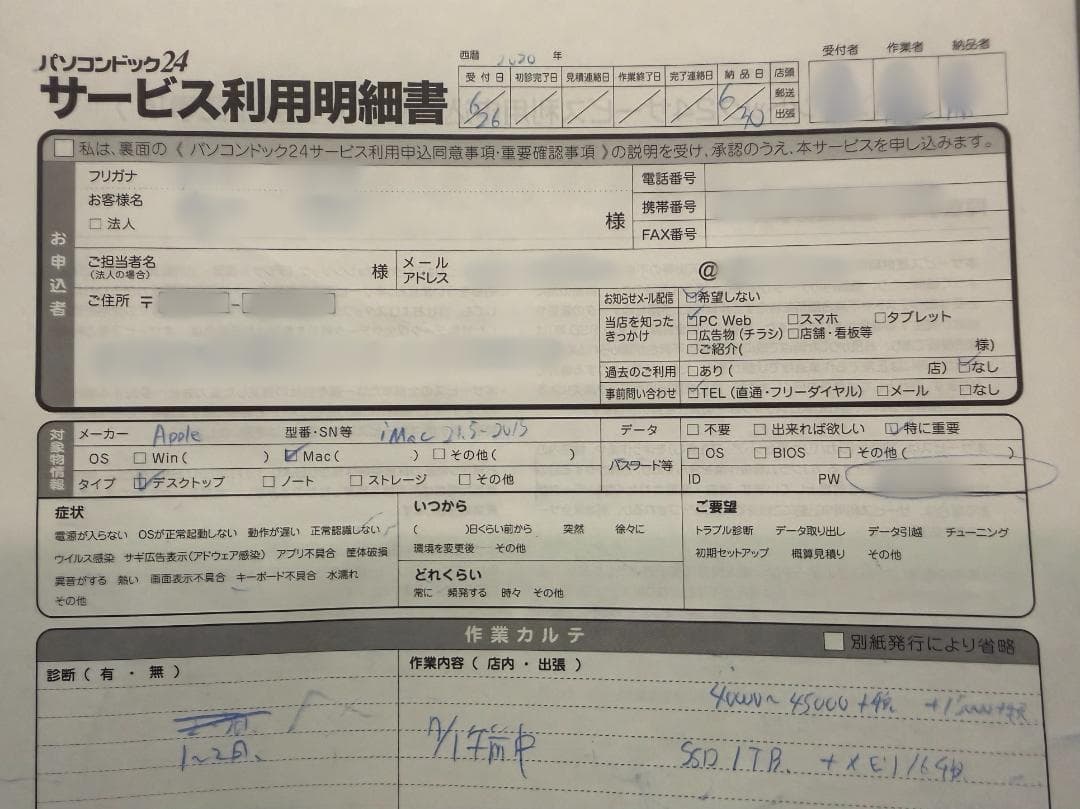 パソコンドック24
サービス利用明細書
西暦 2020 年
受付日 初診完了日 見積連絡日 作業終了日 完了連絡日 納品日 店頭 郵送 出張
6/26 / / / / 6/30
受付者 作業者 納品者
□私は、裏面の《 パソコンドック24サービス利用申込同意事項・重要確認事項 》の説明を受け、承認のうえ、本サービスを申し込みます。
お申込者
フリガナ
お客様名
□法人 様
電話番号
携帯番号
FAX番号
ご担当者名
(法人の場合) 様
メールアドレス @
ご住所 〒 -
お知らせメール配信 ☑希望しない
当店を知ったきっかけ ☑PC Web □スマホ □タブレット
□広告物(チラシ) □店舗・看板等
□ご紹介( 様)
過去のご利用 □あり( 店) ☑なし
事前問い合わせ ☑TEL(直通・フリーダイヤル) □メール □なし
対象物情報
メーカー Apple 型番・SN等 iMac 21.5-2015
OS □Win( ) ☑Mac( ) □その他( )
タイプ ☑デスクトップ □ノート □ストレージ □その他
データ □不要 □出来れば欲しい ☑特に重要
パスワード等 □OS □BIOS □その他( )
ID PW
症状
電源が入らない OSが正常起動しない 動作が遅い 正常認識しない
ウイルス感染 サギ広告表示(アドウェア感染) アプリ不具合 筐体破損
異音がする 熱い 画面表示不具合 キーボード不具合 水濡れ
その他
いつから
( )日くらい前から 突然 徐々に
環境を変更後 その他
どれくらい
常に 頻発する 時々 その他
ご要望
トラブル診断 データ取り出し データ引越 チューニング
初期セットアップ 概算見積り その他
作業カルテ
□別紙発行により省略
診断( 有 ・ 無 )
1〜2日、
作業内容( 店内 ・ 出張 )
40000〜45000+税
7/1午前中
SSD 1TB、 +メモリ16GB